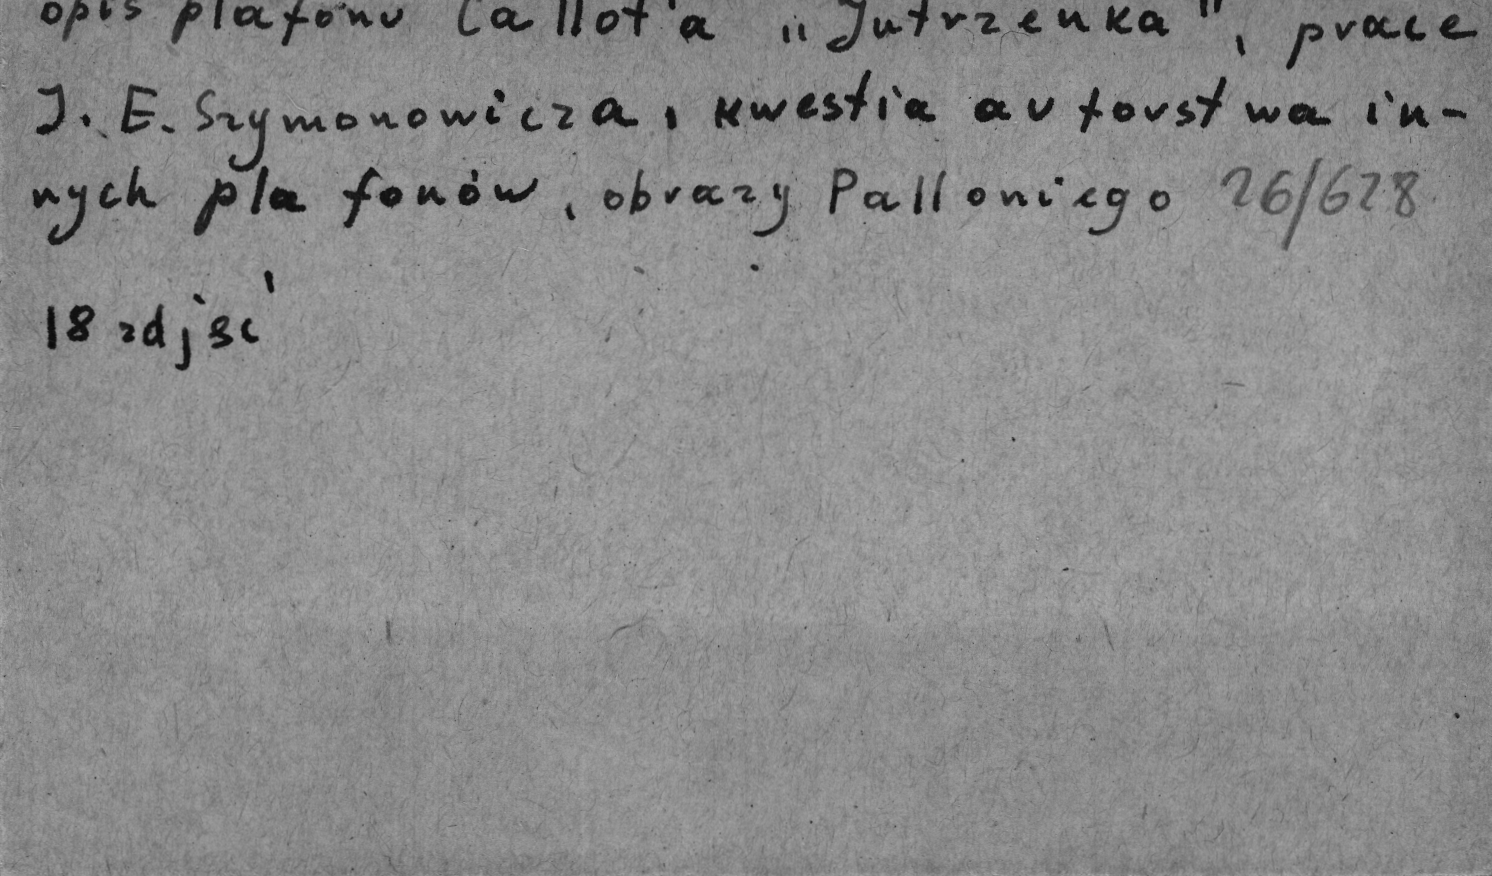 opis plafonu Callot'a „Jutrzenka", prace
J. E. Szymonowicza, kwestia autorstwa in-
nych plafonów, obrazy Palloniego 26/628
18 zdjęć